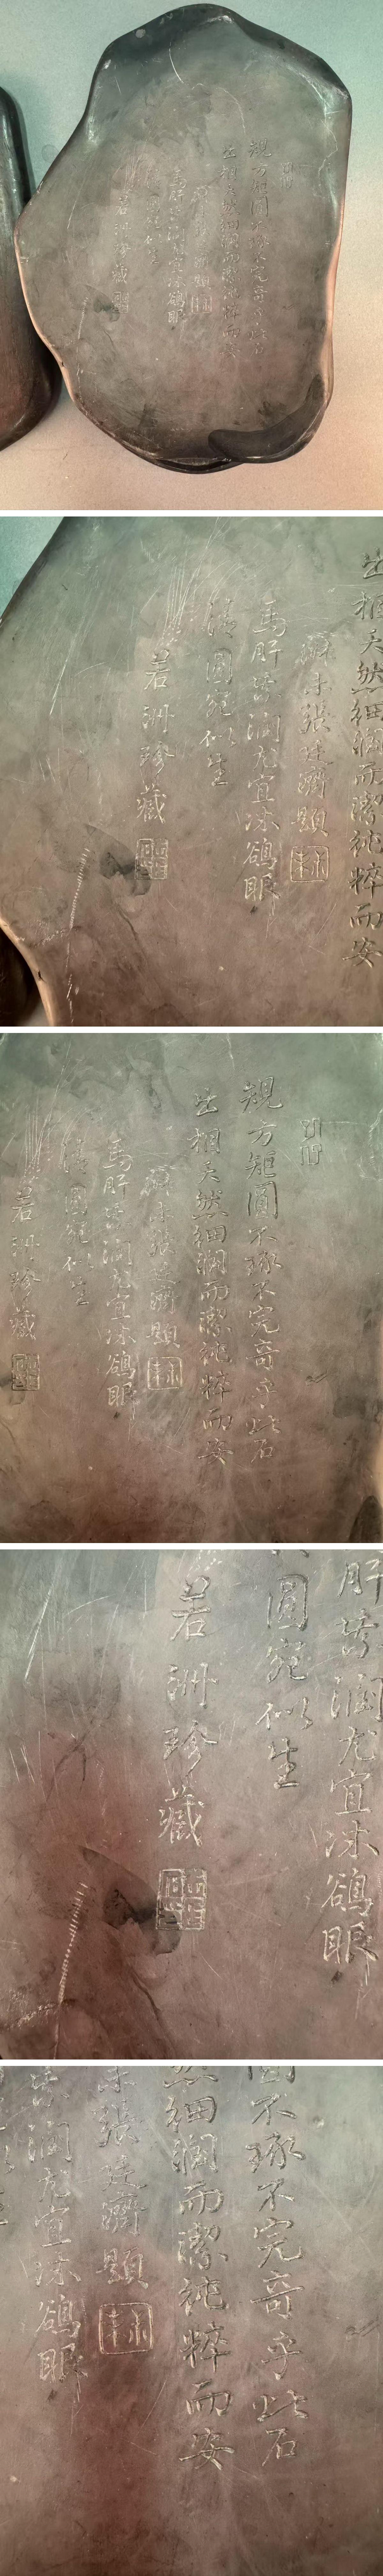 規方矩圓不琢不完奇乎此石
出相天然細潤而潔純粹而安
未張廷濟題
馬肝紫潤尤宜沐鵒眼
清圓宛似生
若洲珍藏